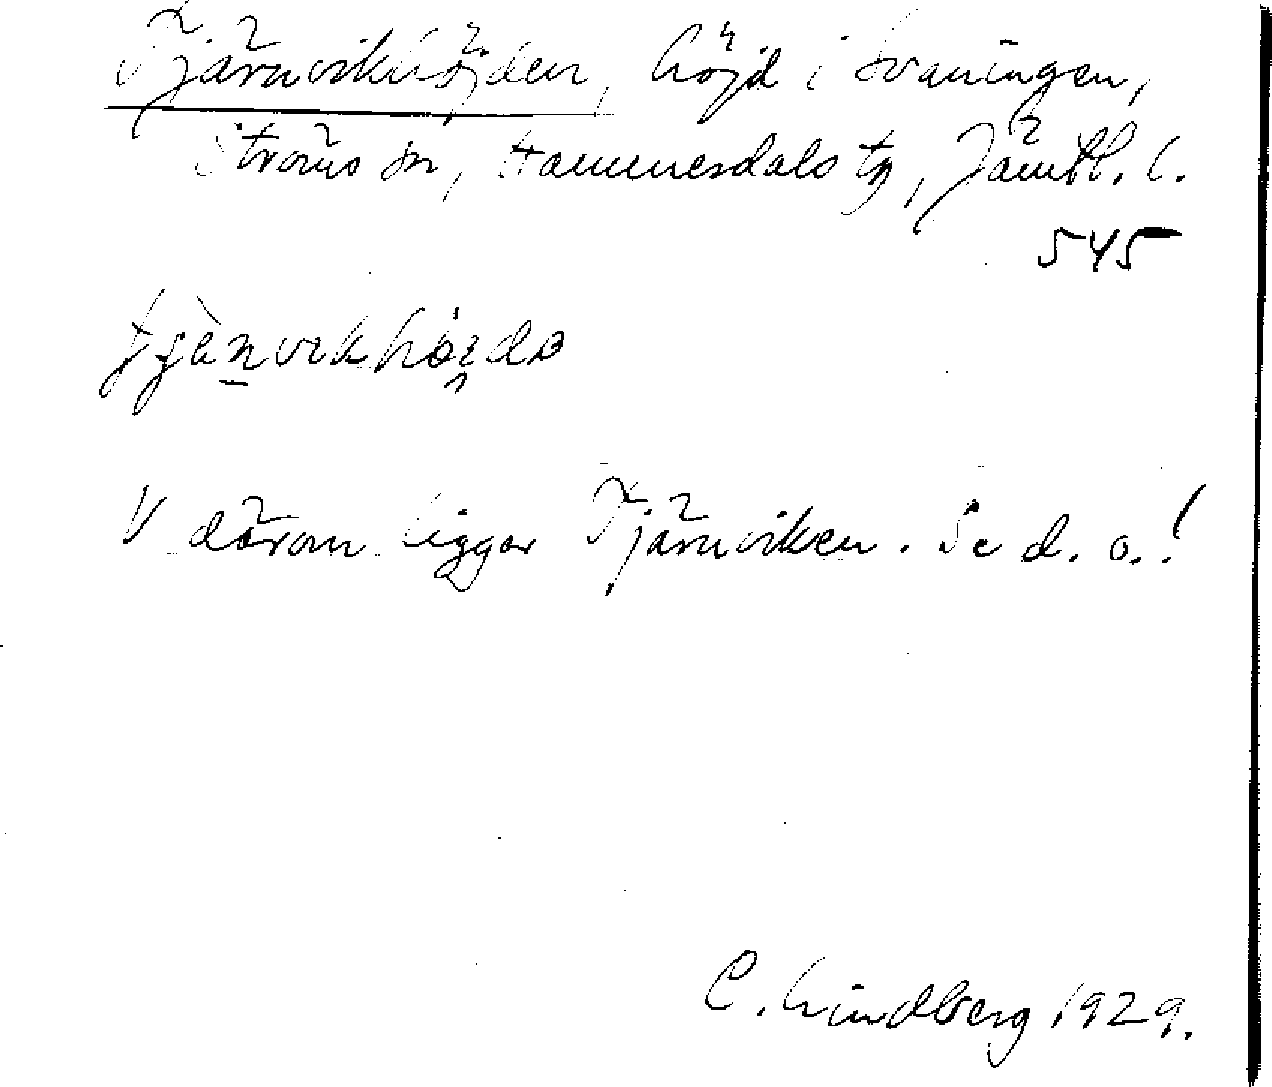 Tjärnvikhöjden, höjd i Svaningen,
Ströms sn, Hammerdals tg, Jämtl. l.
545
V därom ligger Tjärnviken. Se d. o.!
C. Lindberg 1929.